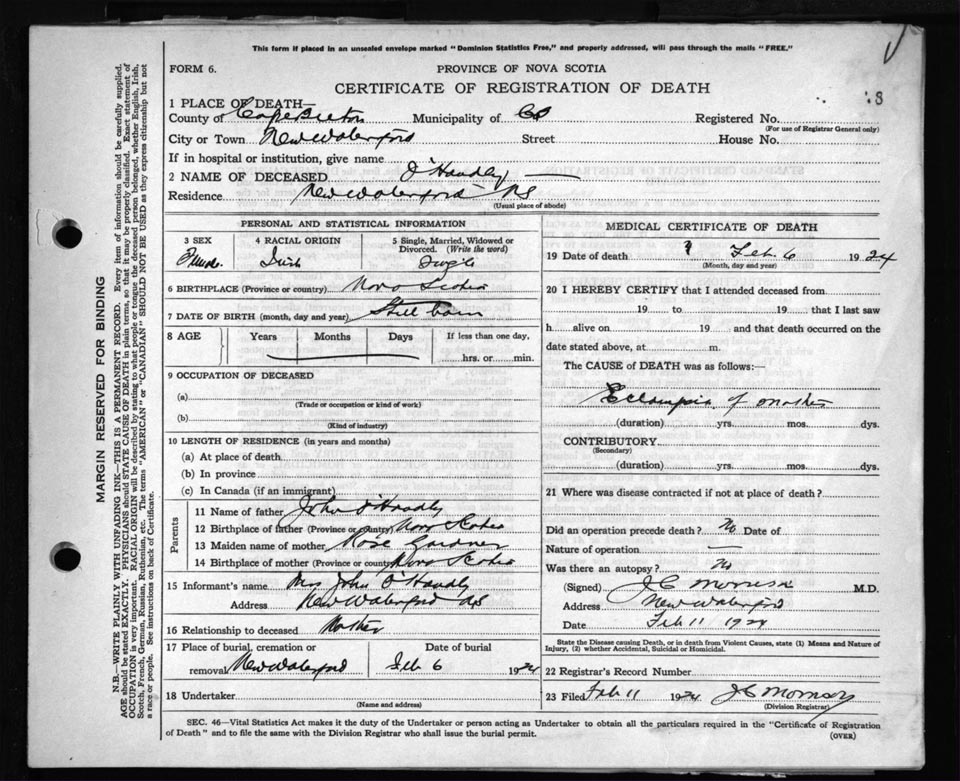 This form if placed in an unsealed envelope marked "Dominion Statistics Free," and properly addressed, will pass through the mails "FREE."
FORM 6.
PROVINCE OF NOVA SCOTIA
CERTIFICATE OF REGISTRATION OF DEATH
1 PLACE OF DEATH—
County of Cape Breton Municipality of CB Registered No.
(For use of Registrar General only)
City or Town New Waterford Street House No.
If in hospital or institution, give name
2 NAME OF DECEASED O'Handley —
Residence New Waterford NS
(Usual place of abode)
PERSONAL AND STATISTICAL INFORMATION
3 SEX 4 RACIAL ORIGIN 5 Single, Married, Widowed or
Divorced. (Write the word)
Irish Single
6 BIRTHPLACE (Province or country) Nova Scotia
7 DATE OF BIRTH (month, day and year) Still born
8 AGE Years Months Days If less than one day,
hrs. or min.
9 OCCUPATION OF DECEASED
(a)
(Trade or occupation or kind of work)
(b)
(Kind of industry)
10 LENGTH OF RESIDENCE (in years and months)
(a) At place of death
(b) In province
(c) In Canada (if an immigrant)
Parents
11 Name of father John O'Handley
12 Birthplace of father (Province or country) Nova Scotia
13 Maiden name of mother Rose Gardner
14 Birthplace of mother (Province or country) Nova Scotia
15 Informant's name Mrs John O'Handley
Address New Waterford NS
16 Relationship to deceased Mother
17 Place of burial, cremation or Date of burial
removal New Waterford Feb 6 1924
18 Undertaker
(Name and address)
MEDICAL CERTIFICATE OF DEATH
19 Date of death Feb. 6 1924
(Month, day and year)
20 I HEREBY CERTIFY that I attended deceased from
19 to 19 that I last saw
h alive on 19 and that death occurred on the
date stated above, at m.
The CAUSE of DEATH was as follows:—
Eclampsia of mother
(duration) yrs. mos. dys.
CONTRIBUTORY
(Secondary)
(duration) yrs. mos. dys.
21 Where was disease contracted if not at place of death?
Did an operation precede death? No Date of
Nature of operation —
Was there an autopsy? No
(Signed) M.D.
Address New Waterford
Date Feb 11 1924
State the Disease causing Death, or in death from Violent Causes, state (1) Means and Nature of
Injury, (2) whether Accidental, Suicidal or Homicidal.
22 Registrar's Record Number
23 Filed Feb 11 1924
(Division Registrar)
SEC. 46—Vital Statistics Act makes it the duty of the Undertaker or person acting as Undertaker to obtain all the particulars required in the "Certificate of Registration
of Death" and to file the same with the Division Registrar who shall issue the burial permit.
(OVER)
MARGIN RESERVED FOR BINDING
N.B.—WRITE PLAINLY WITH UNFADING INK—THIS IS A PERMANENT RECORD. Every item of information should be carefully supplied.
AGE should be stated EXACTLY. PHYSICIANS should STATE CAUSE OF DEATH in plain terms, so that it may be properly classified. Exact statement of
OCCUPATION is very important. RACIAL ORIGIN will be described by stating to what people or tongue the deceased person belonged, whether English, Irish,
Scotch, French, German, Russian, Ruthenian, etc. The terms "AMERICAN" or "CANADIAN" SHOULD NOT BE USED as they express citizenship but not
a race or people. See instructions on back of Certificate.